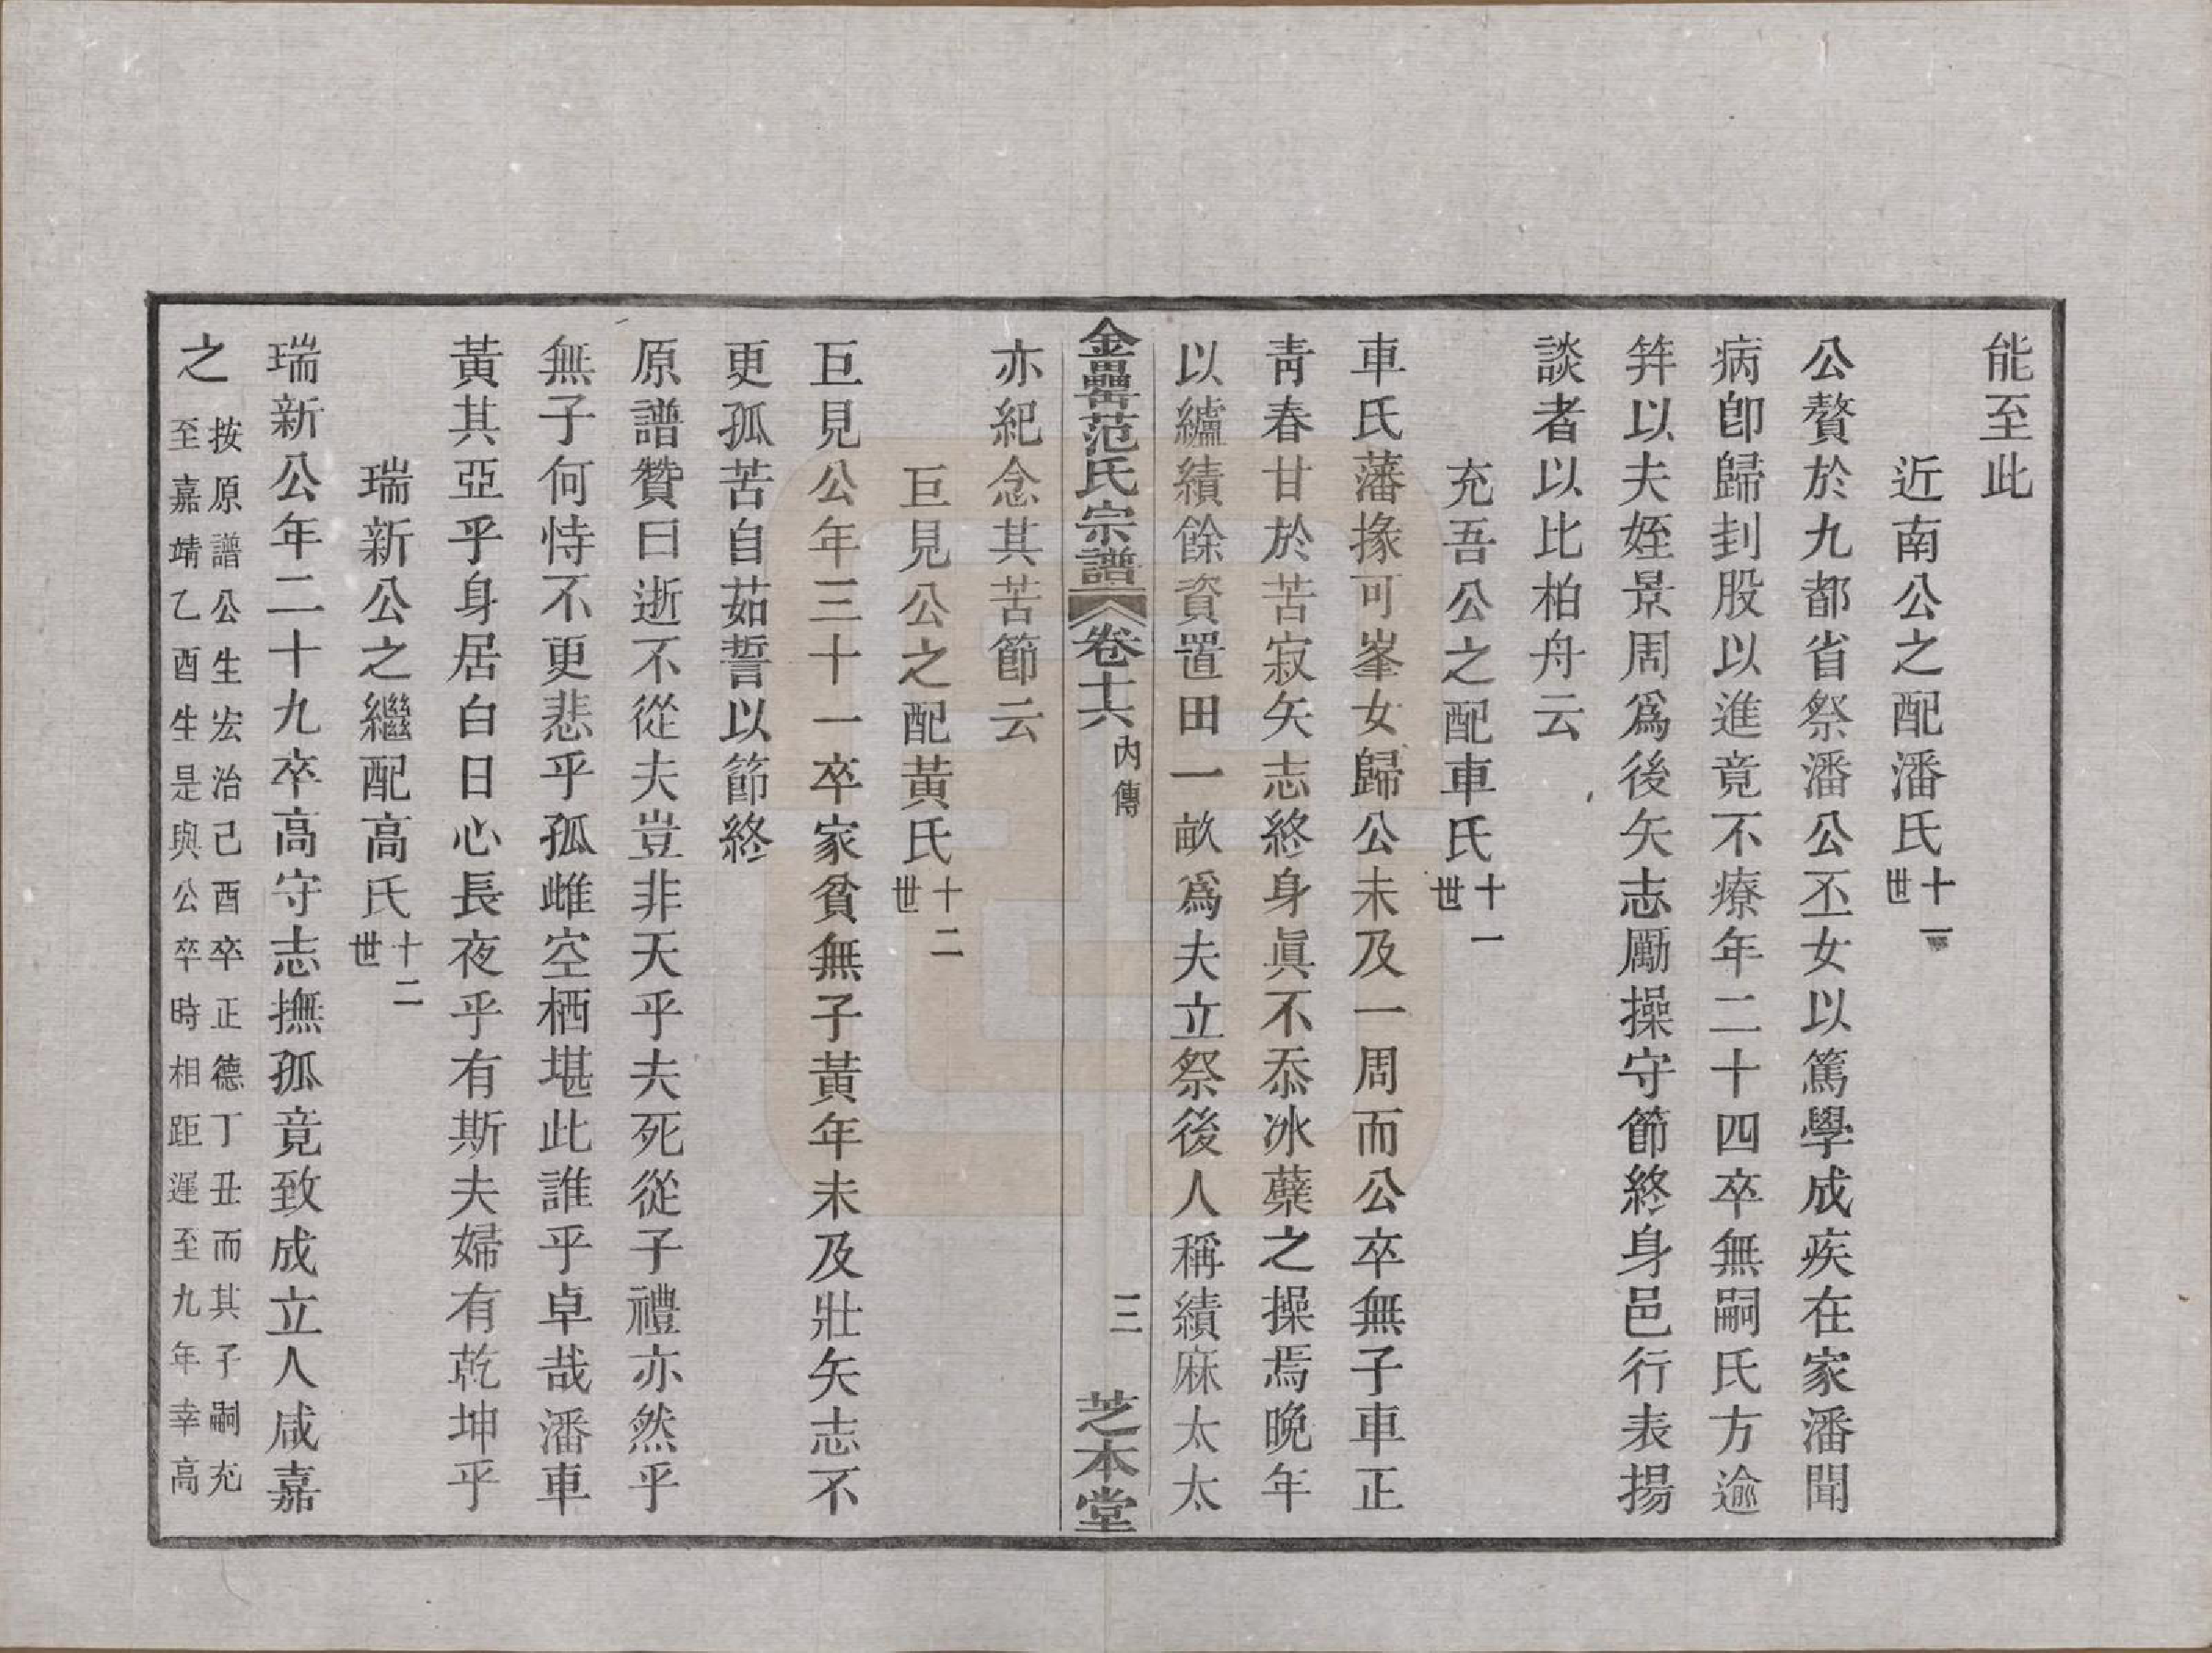 能至此
近南公之配潘氏十一世
公贅於九都省祭潘公丕女以篤學成疾在家潘聞
病卽歸刲股以進竟不療年二十四卒無嗣氏方逾
筓以夫姪景周爲後矢志勵操守節終身邑行表揚
談者以比柏舟云
充吾公之配車氏十一世
車氏藩掾可峯女歸公未及一周而公卒無子車正
青春甘於苦寂矢志終身眞不忝冰蘗之操焉晚年
以纑績餘資置田一畝爲夫立祭後人稱績麻太太
金罍范氏宗譜 卷十六 內傳 三 芝本堂
亦紀念其苦節云
巨見公之配黃氏十二世
巨見公年三十一卒家貧無子黃年未及壯矢志不
更孤苦自茹誓以節終
原譜贊曰逝不從夫豈非天乎夫死從子禮亦然乎
無子何恃不更悲乎孤雌空栖堪此誰乎卓哉潘車
黃其亞乎身居白日心長夜乎有斯夫婦有乾坤乎
瑞新公之繼配高氏十二世
瑞新公年二十九卒高守志撫孤竟致成立人咸嘉
之按原譜公生宏治己酉卒正德丁丑而其子嗣充
至嘉靖乙酉生是與公卒時相距遲至九年幸高